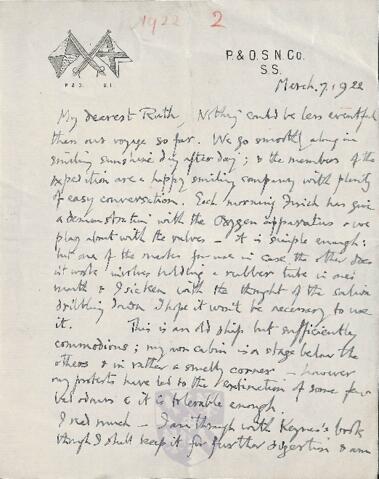 1922 2
P & O. S. N. Co.
S.S.
P & O. B I
March. 7. 1922
My dearest Ruth, Nothing could be less eventful
than our voyage so far. We go smoothly along in
smiling sunshine day after day; & the members of the
expedition are a happy smiling company with plenty
of easy conversation. Each morning Finch has give
a demonstration with the Oxygen apparatus & we
play about with the valves – It is simple enough;
but one of the masks for use in case the other does
it work involves holding a rubber tube in one's
mouth & I sicken with the thought of the saliva
dribbling down. I hope it won't be necessary to use
it. This is an old ship but sufficiently
commodious; my own cabin is a stage below the
others & in rather a smelly corner – however
my protests have led to the extinction of some few
bad odours & it is tolerable enough.
I read much – I am through with Keynes's book
though I shall keep it for further digestion & am